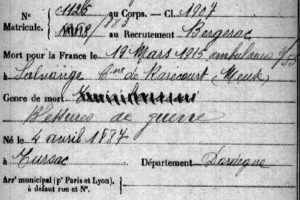 Nº 1126 au Corps. — Cl. 1907
Matricule. au Recrutement Bergerac
Mort pour la France le 19 Mars 1915 ambulance
à Salvange Cne de Rarécourt Meuse
Genre de mort
Blessures de guerre
Né le 4 avril 1887
à Tursac Département Dordogne
Arr¹ municipal (pʳ Paris et Lyon),
à défaut rue et Nº.